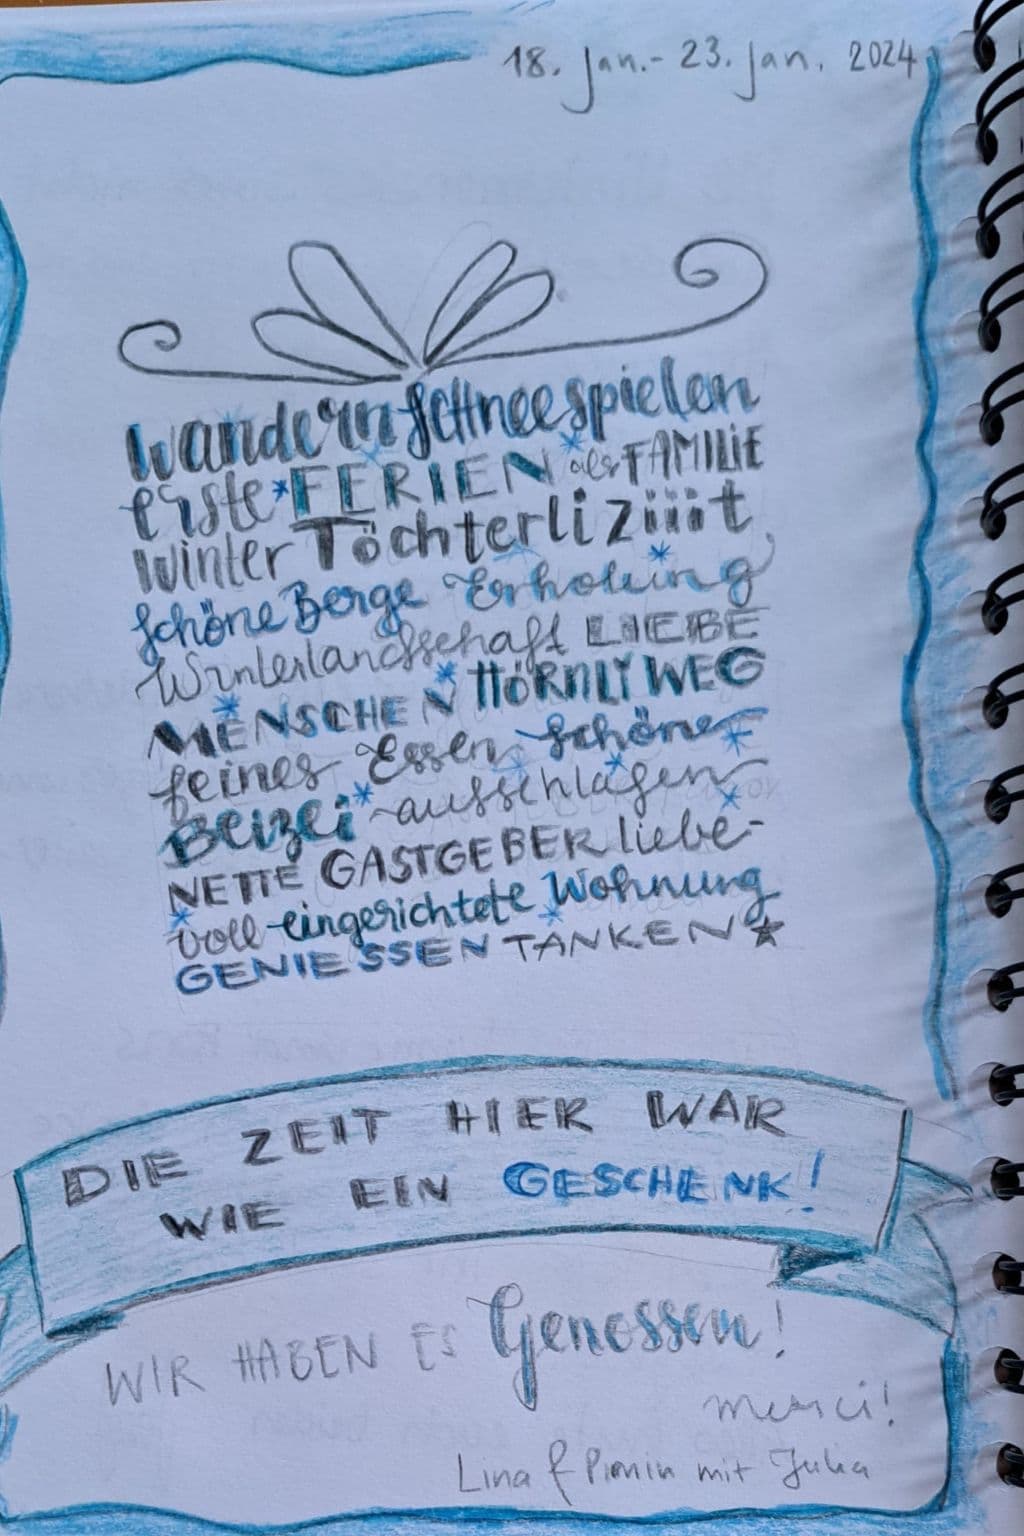 18. Jan. - 23. Jan. 2024
Wandern Schneespielen
erste FERIEN als FAMILIE
Winter Töchterli Ziiit
schöne Berge Erholung
Winterlandschaft LIEBE
MENSCHEN HÖRNLIWEG
feines Essen schöne
Beizei ausschlafen
NETTE GASTGEBER liebe-
voll eingerichtete Wohnung
GENIESSEN TANKEN
DIE ZEIT HIER WAR
WIE EIN GESCHENK!
WIR HABEN ES Genossen!
merci!
Lina & Pirmin mit Julia